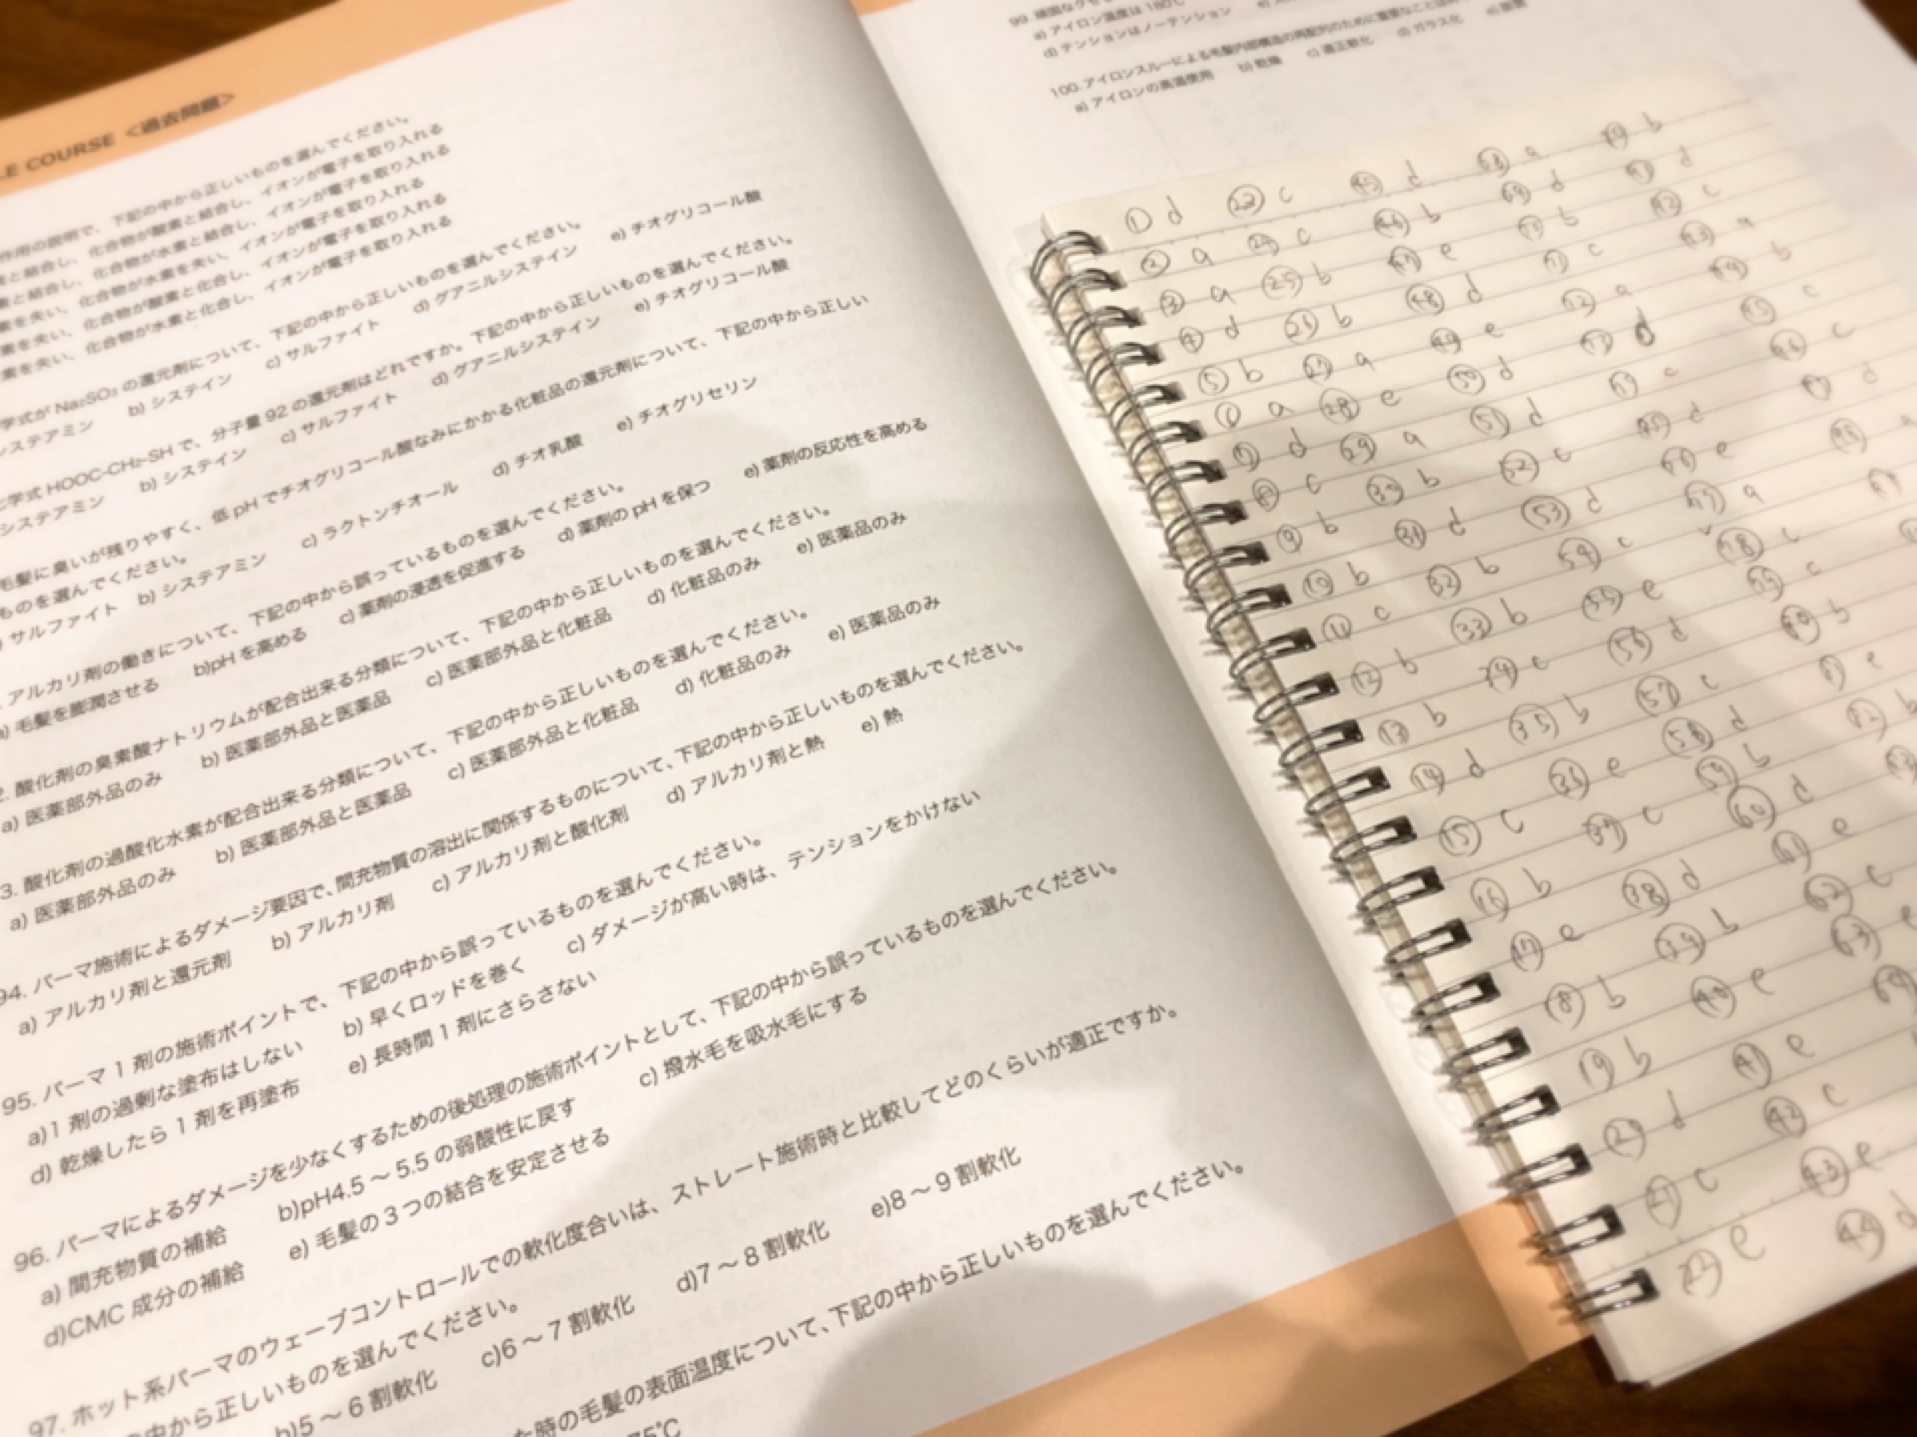 LE COURSE <過去問題>
作用の説明で、下記の中から正しいものを選んでください。
素と結合し、化合物が酸素と結合し、イオンが電子を取り入れる
素と結合し、化合物が水素と結合し、イオンが電子を取り入れる
素を失い、化合物が水素を失い、イオンが電子を取り入れる
素を失い、化合物が酸素と化合し、イオンが電子を取り入れる
素を失い、化合物が水素と化合し、イオンが電子を取り入れる
学式が Na₂SO₃ の還元剤について、下記の中から正しいものを選んでください。
システアミン b) システイン c) サルファイト d) グアニルシステイン e) チオグリコール酸
化学式 HOOC-CH₂-SH で、分子量 92 の還元剤はどれですか。下記の中から正しいものを選んでください。
システアミン b) システイン c) サルファイト d) グアニルシステイン e) チオグリコール酸
毛髪に臭いが残りやすく、低 pH でチオグリコール酸なみにかかる化粧品の還元剤について、下記の中から正しい
ものを選んでください。
サルファイト b) システアミン c) ラクトンチオール d) チオ乳酸 e) チオグリセリン
アルカリ剤の働きについて、下記の中から誤っているものを選んでください。
a) 毛髪を膨潤させる b)pH を高める c) 薬剤の浸透を促進する d) 薬剤の pH を保つ e) 薬剤の反応性を高める
2. 酸化剤の臭素酸ナトリウムが配合出来る分類について、下記の中から正しいものを選んでください。
a) 医薬部外品のみ b) 医薬部外品と医薬品 c) 医薬部外品と化粧品 d) 化粧品のみ e) 医薬品のみ
3. 酸化剤の過酸化水素が配合出来る分類について、下記の中から正しいものを選んでください。
a) 医薬部外品のみ b) 医薬部外品と医薬品 c) 医薬部外品と化粧品 d) 化粧品のみ e) 医薬品のみ
94. パーマ施術によるダメージ要因で、間充物質の溶出に関係するものについて、下記の中から正しいものを選んでください。
a) アルカリ剤と還元剤 b) アルカリ剤 c) アルカリ剤と酸化剤 d) アルカリ剤と熱 e) 熱
95. パーマ 1 剤の施術ポイントで、下記の中から誤っているものを選んでください。
a)1 剤の過剰な塗布はしない b) 早くロッドを巻く c) ダメージが高い時は、テンションをかけない
d) 乾燥したら 1 剤を再塗布 e) 長時間 1 剤にさらさない
96. パーマによるダメージを少なくするための後処理の施術ポイントとして、下記の中から誤っているものを選んでください。
a) 間充物質の補給 b)pH4.5 ~ 5.5 の弱酸性に戻す c) 撥水毛を吸水毛にする
d)CMC 成分の補給 e) 毛髪の 3 つの結合を安定させる
97. ホット系パーマのウェーブコントロールでの軟化度合いは、ストレート施術時と比較してどのくらいが適正ですか。
の中から正しいものを選んでください。
b)5 ~ 6 割軟化 c)6 ~ 7 割軟化 d)7 ~ 8 割軟化 e)8 ~ 9 割軟化
た時の毛髪の表面温度について、下記の中から正しいものを選んでください。
75℃
99. 頑固なクセ
a) アイロン温度は 180℃
d) テンションはノーテンション
100. アイロンスルーによる毛髪内部構造の再配列のために重要なことは
a) アイロンの高温使用 b) 乾燥 c) 適正軟化 d) ガラス化
① d ㉓ c ㊺ d a b
② a ㉔ c ㊻ b d d
③ a ㉕ b ㊼ e b c
④ d ㉖ b ㊽ d c a
⑤ b ㉗ a ㊾ e a b
⑥ a ㉘ e ㊿ d d c
⑦ d ㉙ a 51 d c c
⑧ c ㉚ b 52 c d d
⑨ b ㉛ d 53 d e a
⑩ b ㉜ b 54 c a
⑪ c ㉝ b 55 e c
⑫ b ㉞ c 56 d c
⑬ b ㉟ b 57 c b
⑭ d ㊱ e 58 d e
⑮ c ㊲ c 59 b b
⑯ b ㊳ d 60 d
⑰ e ㊴ b 61 e
⑱ b ㊵ e 62 c
⑲ b ㊶ e 63 e
⑳ d ㊷ c 64
㉑ c ㊸ e
㉒ e ㊹ d